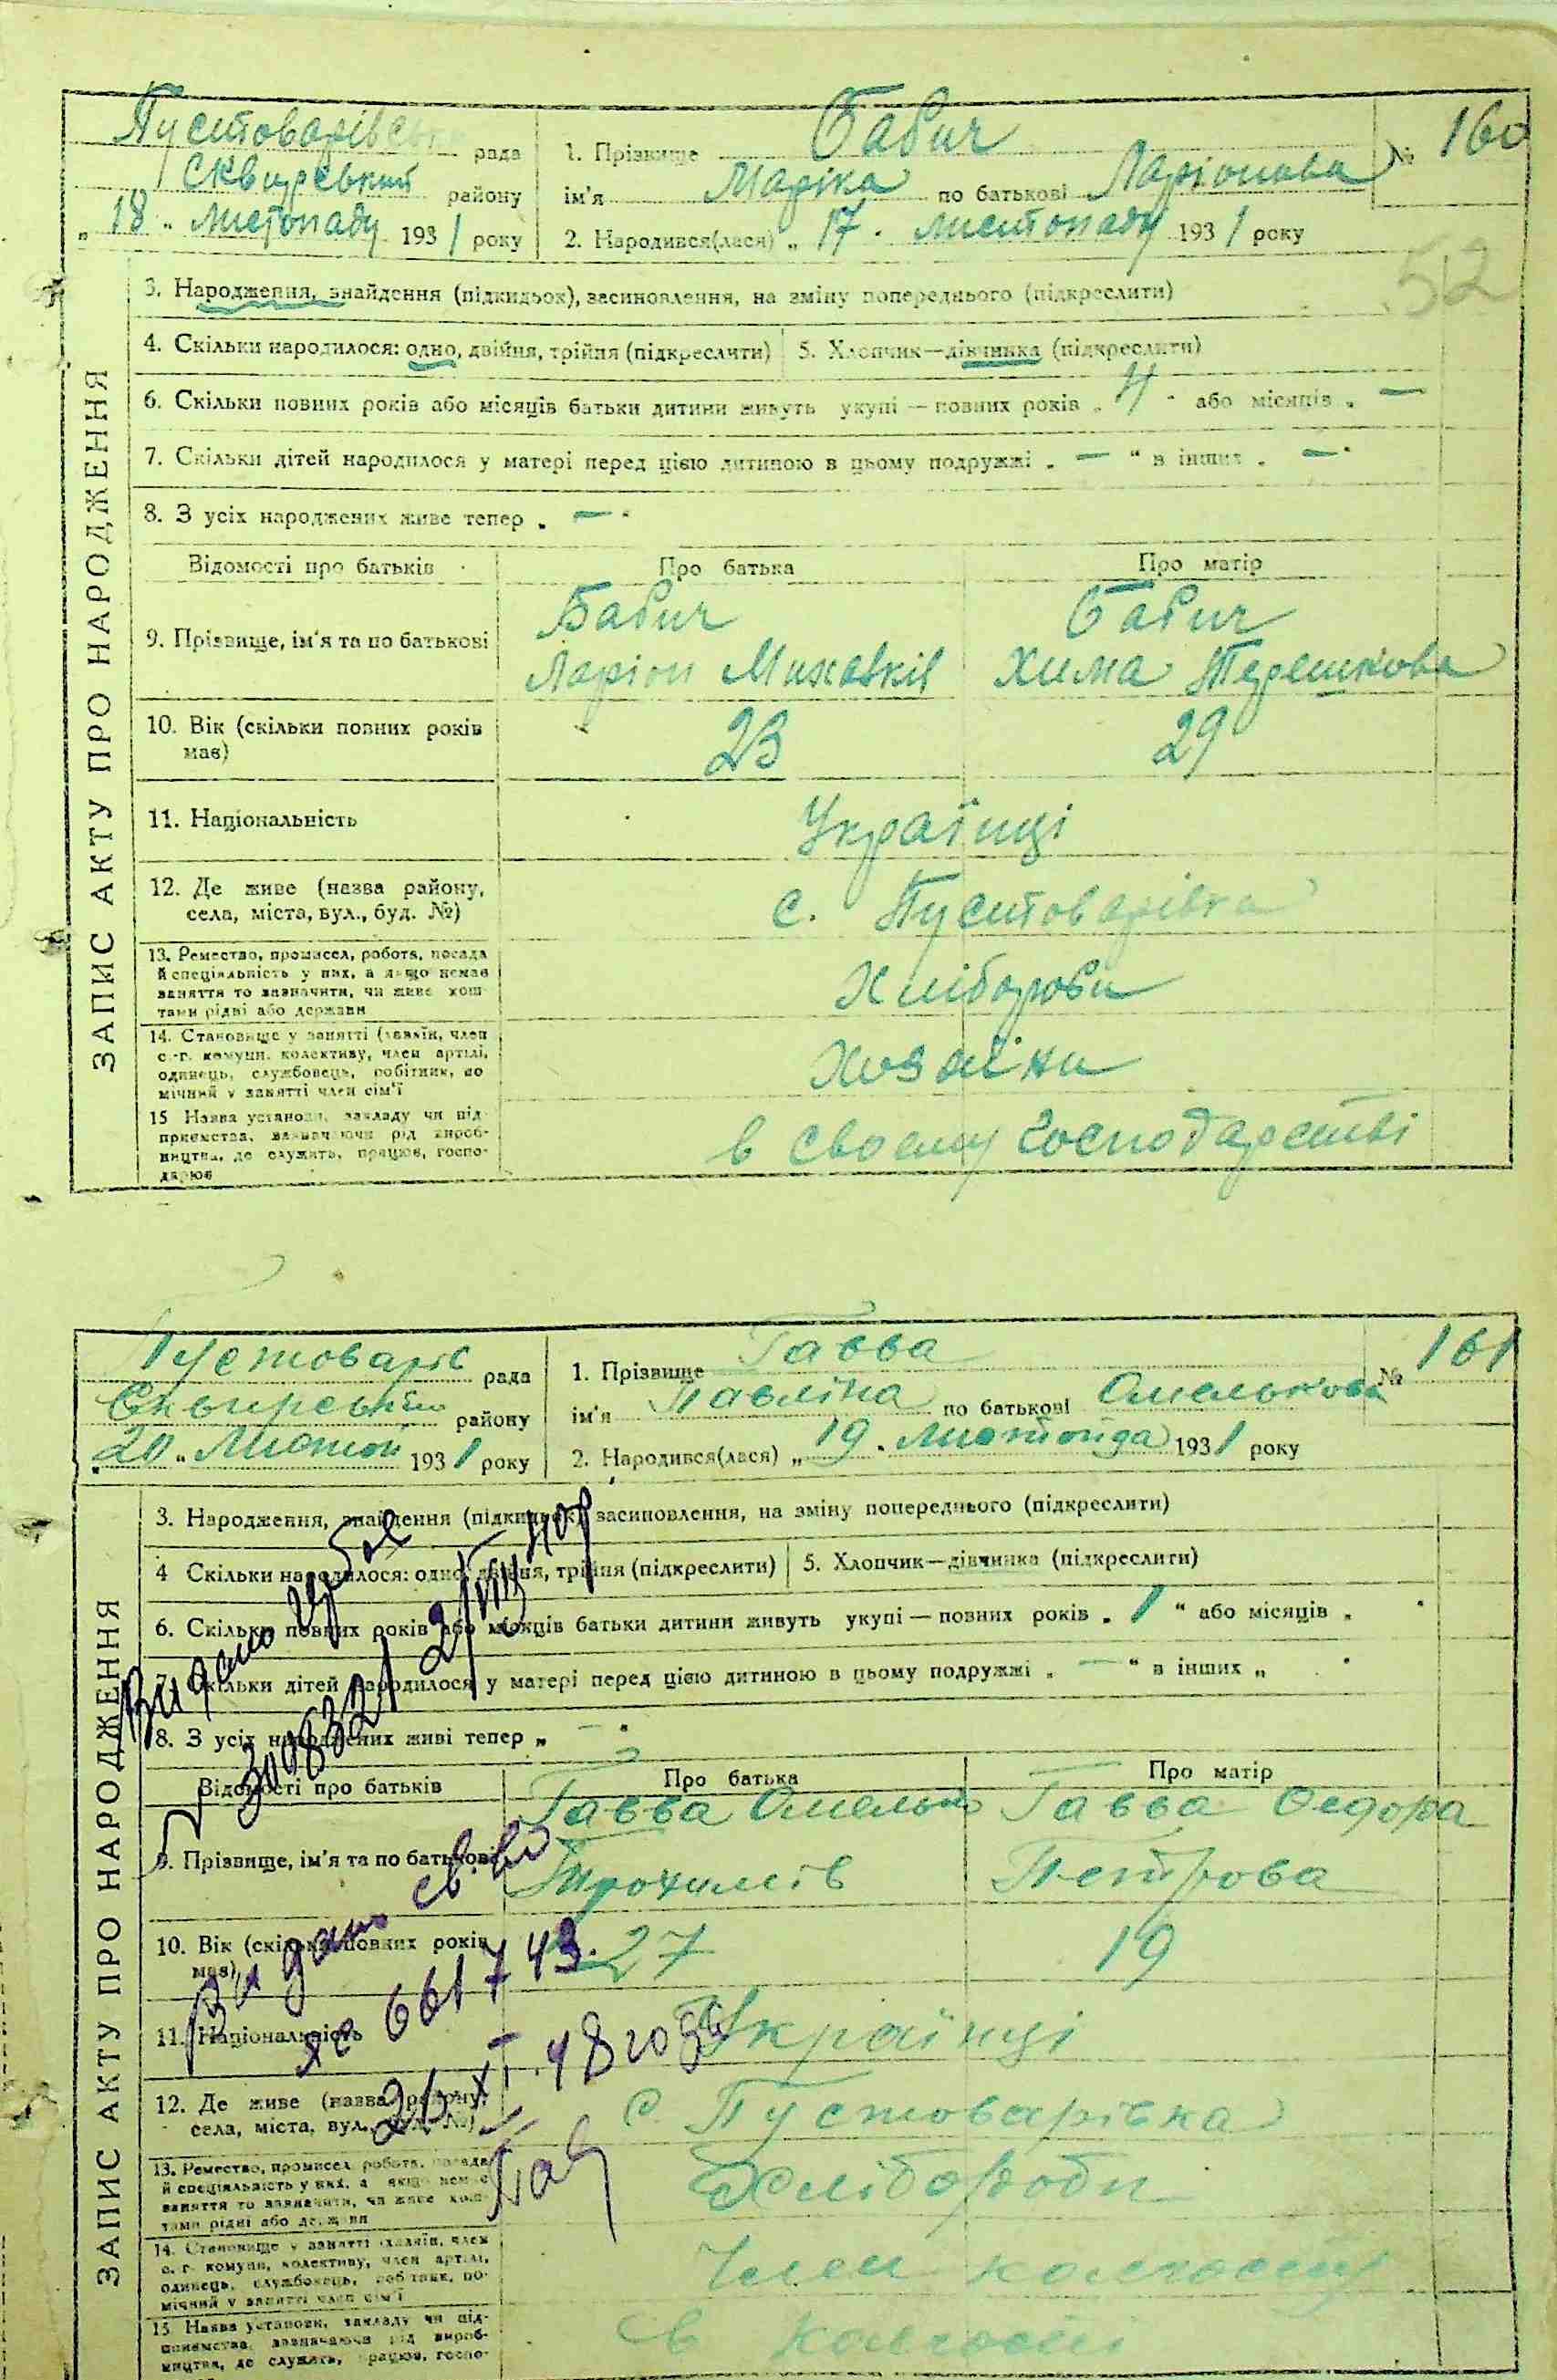 Пустоварівськ рада
Сквирський району
„18" листопаду 1931 року
1. Прізвище Бабич № 160
ім'я Маріка по батькові Ларіонова
2. Народився(лася) „17" листопаду 1931 року
52
ЗАПИС АКТУ ПРО НАРОДЖЕННЯ
3. Народження, знайдення (підкидьок), засиновлення, на зміну попереднього (підкреслити)
4. Скільки народилося: одно, двійня, трійня (підкреслити) 5. Хлопчик—дівчинка (підкреслити)
6. Скільки повних років або місяців батьки дитини живуть укупі — повних років „4" або місяців „—
7. Скільки дітей народилося у матері перед цією дитиною в цьому подружжі „—" в інших „—"
8. З усіх народжених живе тепер „—"
Відомості про батьків Про батька Про матір
9. Прізвище, ім'я та по батькові
Бабич Бабич
Ларіон Михавків Хима Терешкова
10. Вік (скільки повних років має) 23 29
11. Національність Українці
12. Де живе (назва району, села, міста, вул., буд. №) с. Пустоварівка
13. Ремество, промисел, робота, посада й спеціяльність у них, а якщо немає заняття то зазначити, чи живе кош-тами рідні або держави Хлібороби
14. Становище у занятті (хазяїн, член с.-г. комуни, колективу, член артілі, одинець, службовець, робітник, по мічний у занятті член сім'ї Хозяїни
15 Назва установи, закладу чи під-приємства, зазначаючи рід вироб-ництва, де служить, працює, госпо-дарює в своєму господарстві
Пустоварів рада
Сквирський району
„20" Листоп 1931 року
1. Прізвище Гавва № 161
ім'я Павліна по батькові Омелькова
2. Народився(лася) „19" листопада 1931 року
ЗАПИС АКТУ ПРО НАРОДЖЕННЯ
3. Народження, знайдення (підкидьок) засиновлення, на зміну попереднього (підкреслити)
4 Скільки народилося: одно, двійня, трійня (підкреслити) 5. Хлопчик—дівчинка (підкреслити)
6. Скільки повних років або місяців батьки дитини живуть укупі — повних років „1" або місяців „ "
7. Скільки дітей народилося у матері перед цією дитиною в цьому подружжі „—" в інших „ "
8. З усіх народжених живі тепер „—"
Відомості про батьків Про батька Про матір
9. Прізвище, ім'я та по батькові
Гавва Омелько Гавва Федора
Трохимів Петрова
10. Вік (скільки повних років має) 27 19
11. Національність Українці
12. Де живе (назва району, села, міста, вул., буд. №) с. Пустоварівка
13. Ремество, промисел, робота, посада й спеціяльність у них, а якщо немає заняття то зазначити, чи живе кош-тами рідні або держави Хлібороби
14. Становище у занятті (хазяїн, член с. г. комуни, колективу, член артілі, одинець, службовець, робітник, по-мічний у занятті член сім'ї Член колгоспу
15 Назва установи, закладу чи під-приємства, зазначаючи рід вироб-ництва, де служить, працює, госпо- в колгоспі
Видано
Видано св. во
№ 661743
26 XI 48 года